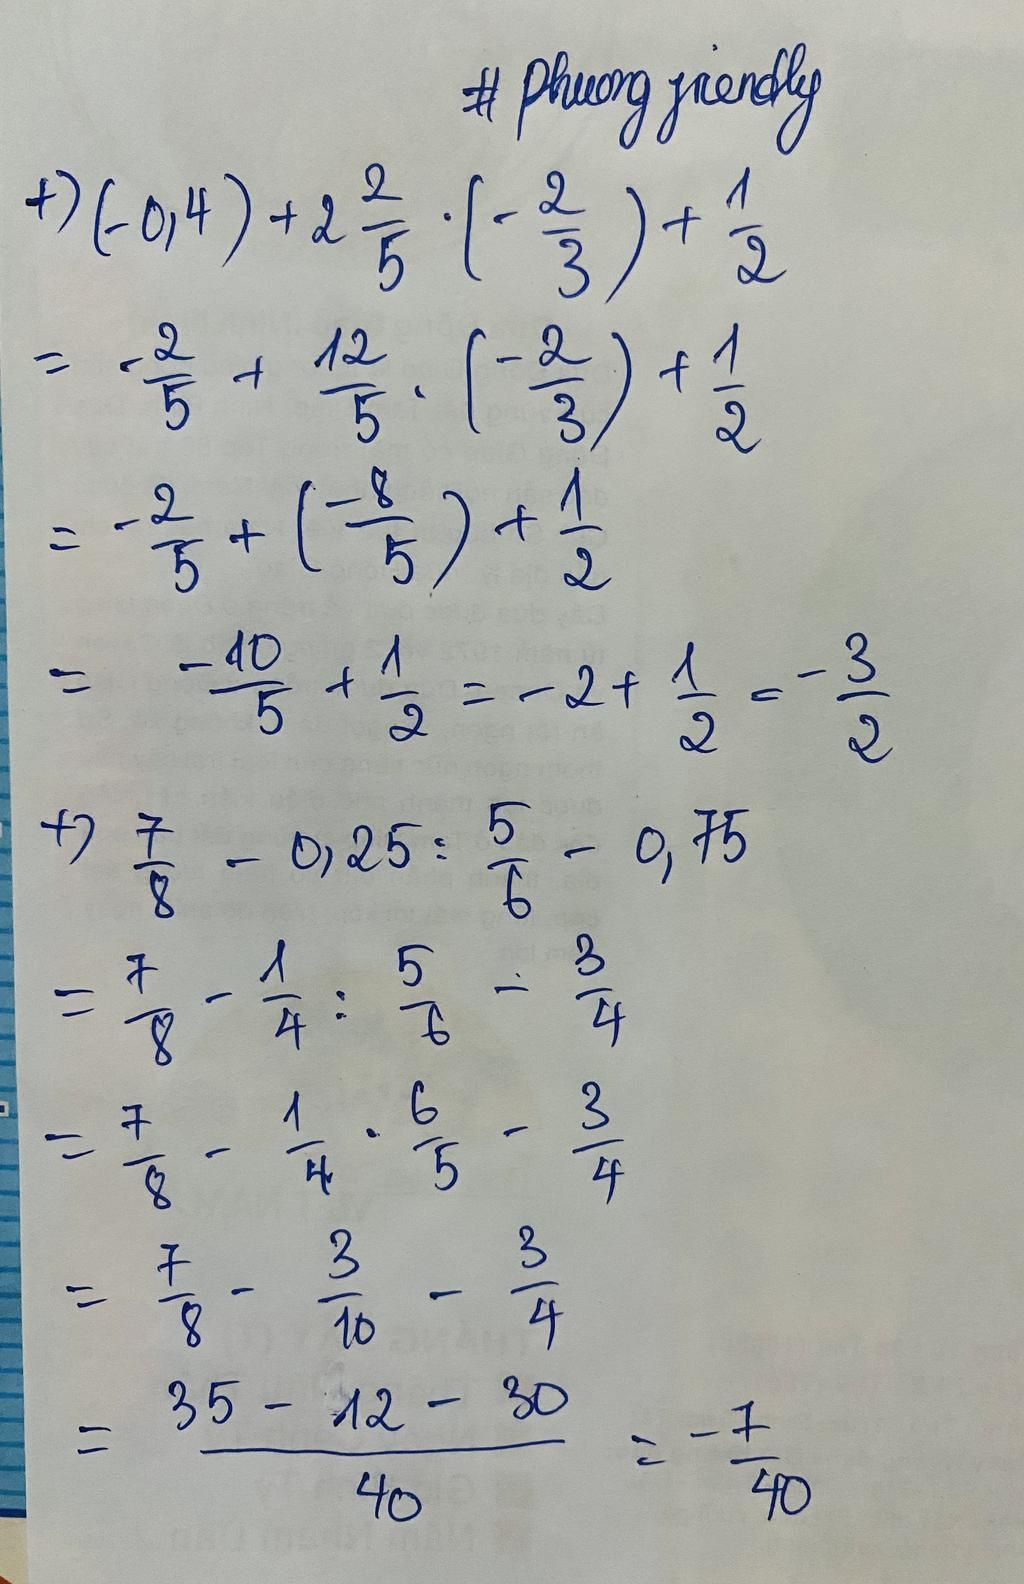 # Phuong friendly
+) (-0,4) + 2 2/5 · (-2/3) + 1/2
= -2/5 + 12/5 · (-2/3) + 1/2
= -2/5 + (-8/5) + 1/2
= -10/5 + 1/2 = -2 + 1/2 = -3/2
+) 7/8 - 0,25 : 5/6 - 0,75
= 7/8 - 1/4 : 5/6 - 3/4
= 7/8 - 1/4 · 6/5 - 3/4
= 7/8 - 3/10 - 3/4
= (35 - 12 - 30)/40 = -7/40